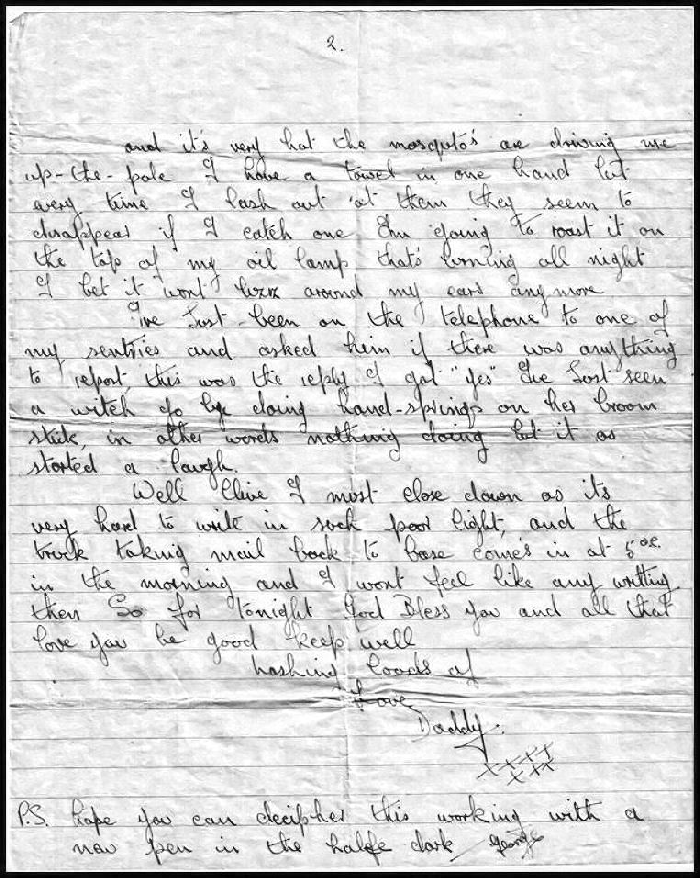 2.
and it's very hot the mosquto's are driving me
up-the-pole I have a towel in one hand but
every time I lash out at them they seem to
disappear if I catch one I'm going to roast it on
the top of my oil lamp that's burning all night
I bet it won't buzz around my ears anymore
I've Just been on the telephone to one of
my sentries and asked him if there was anything
to report, this was the reply I got "yes" I've Just seen
a witch go by doing hand-springs on her broom
stick, in other words nothing doing but it as
started a laugh.
Well Clive I must close down as its
very hard to write in such poor light, and the
truck taking mail back to base come's in at
in the morning and I wont feel like any writting
then So for tonight God Bless you and all that
love you be good keep well
loads of
Love
Daddy.
xxxx
xxx
P.S. hope you can decipher this working with a
new pen in the halfe dark George